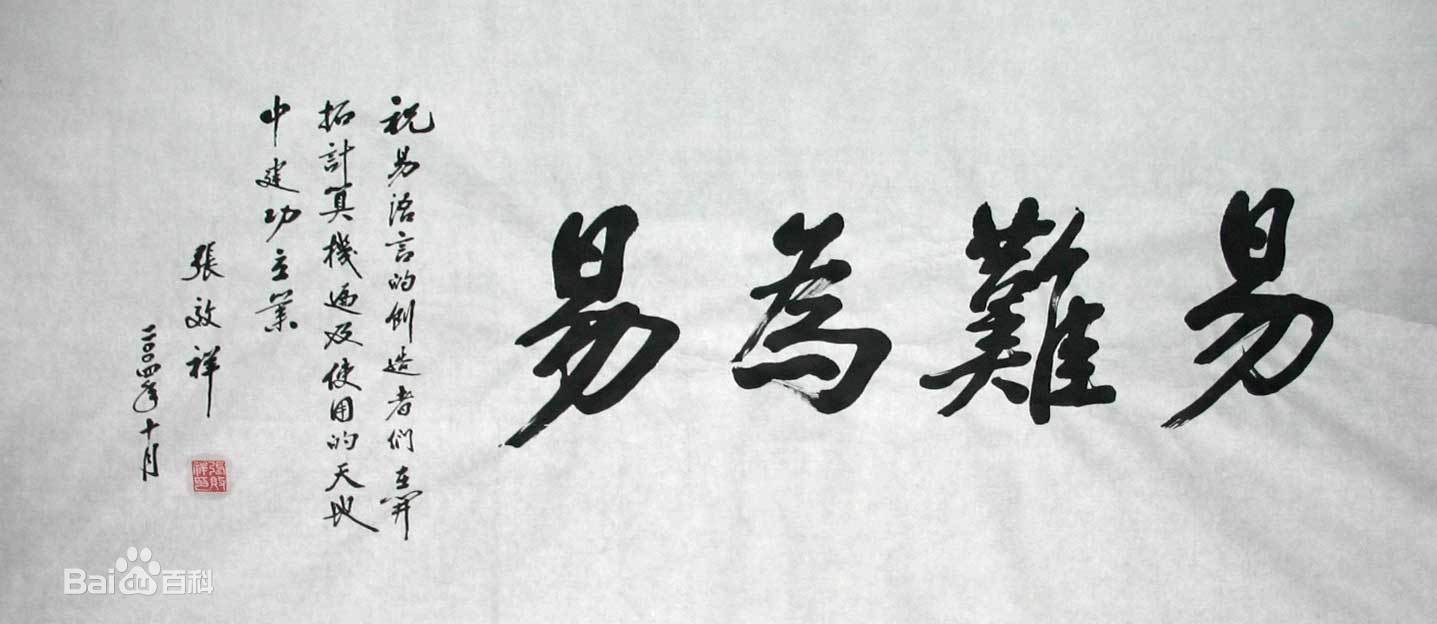 易難為易
祝易語言的創造者們在開
拓計算機遍及使用的天地
中建功立業
張效祥
二〇〇四年十月
張效祥印
Bai du 百科